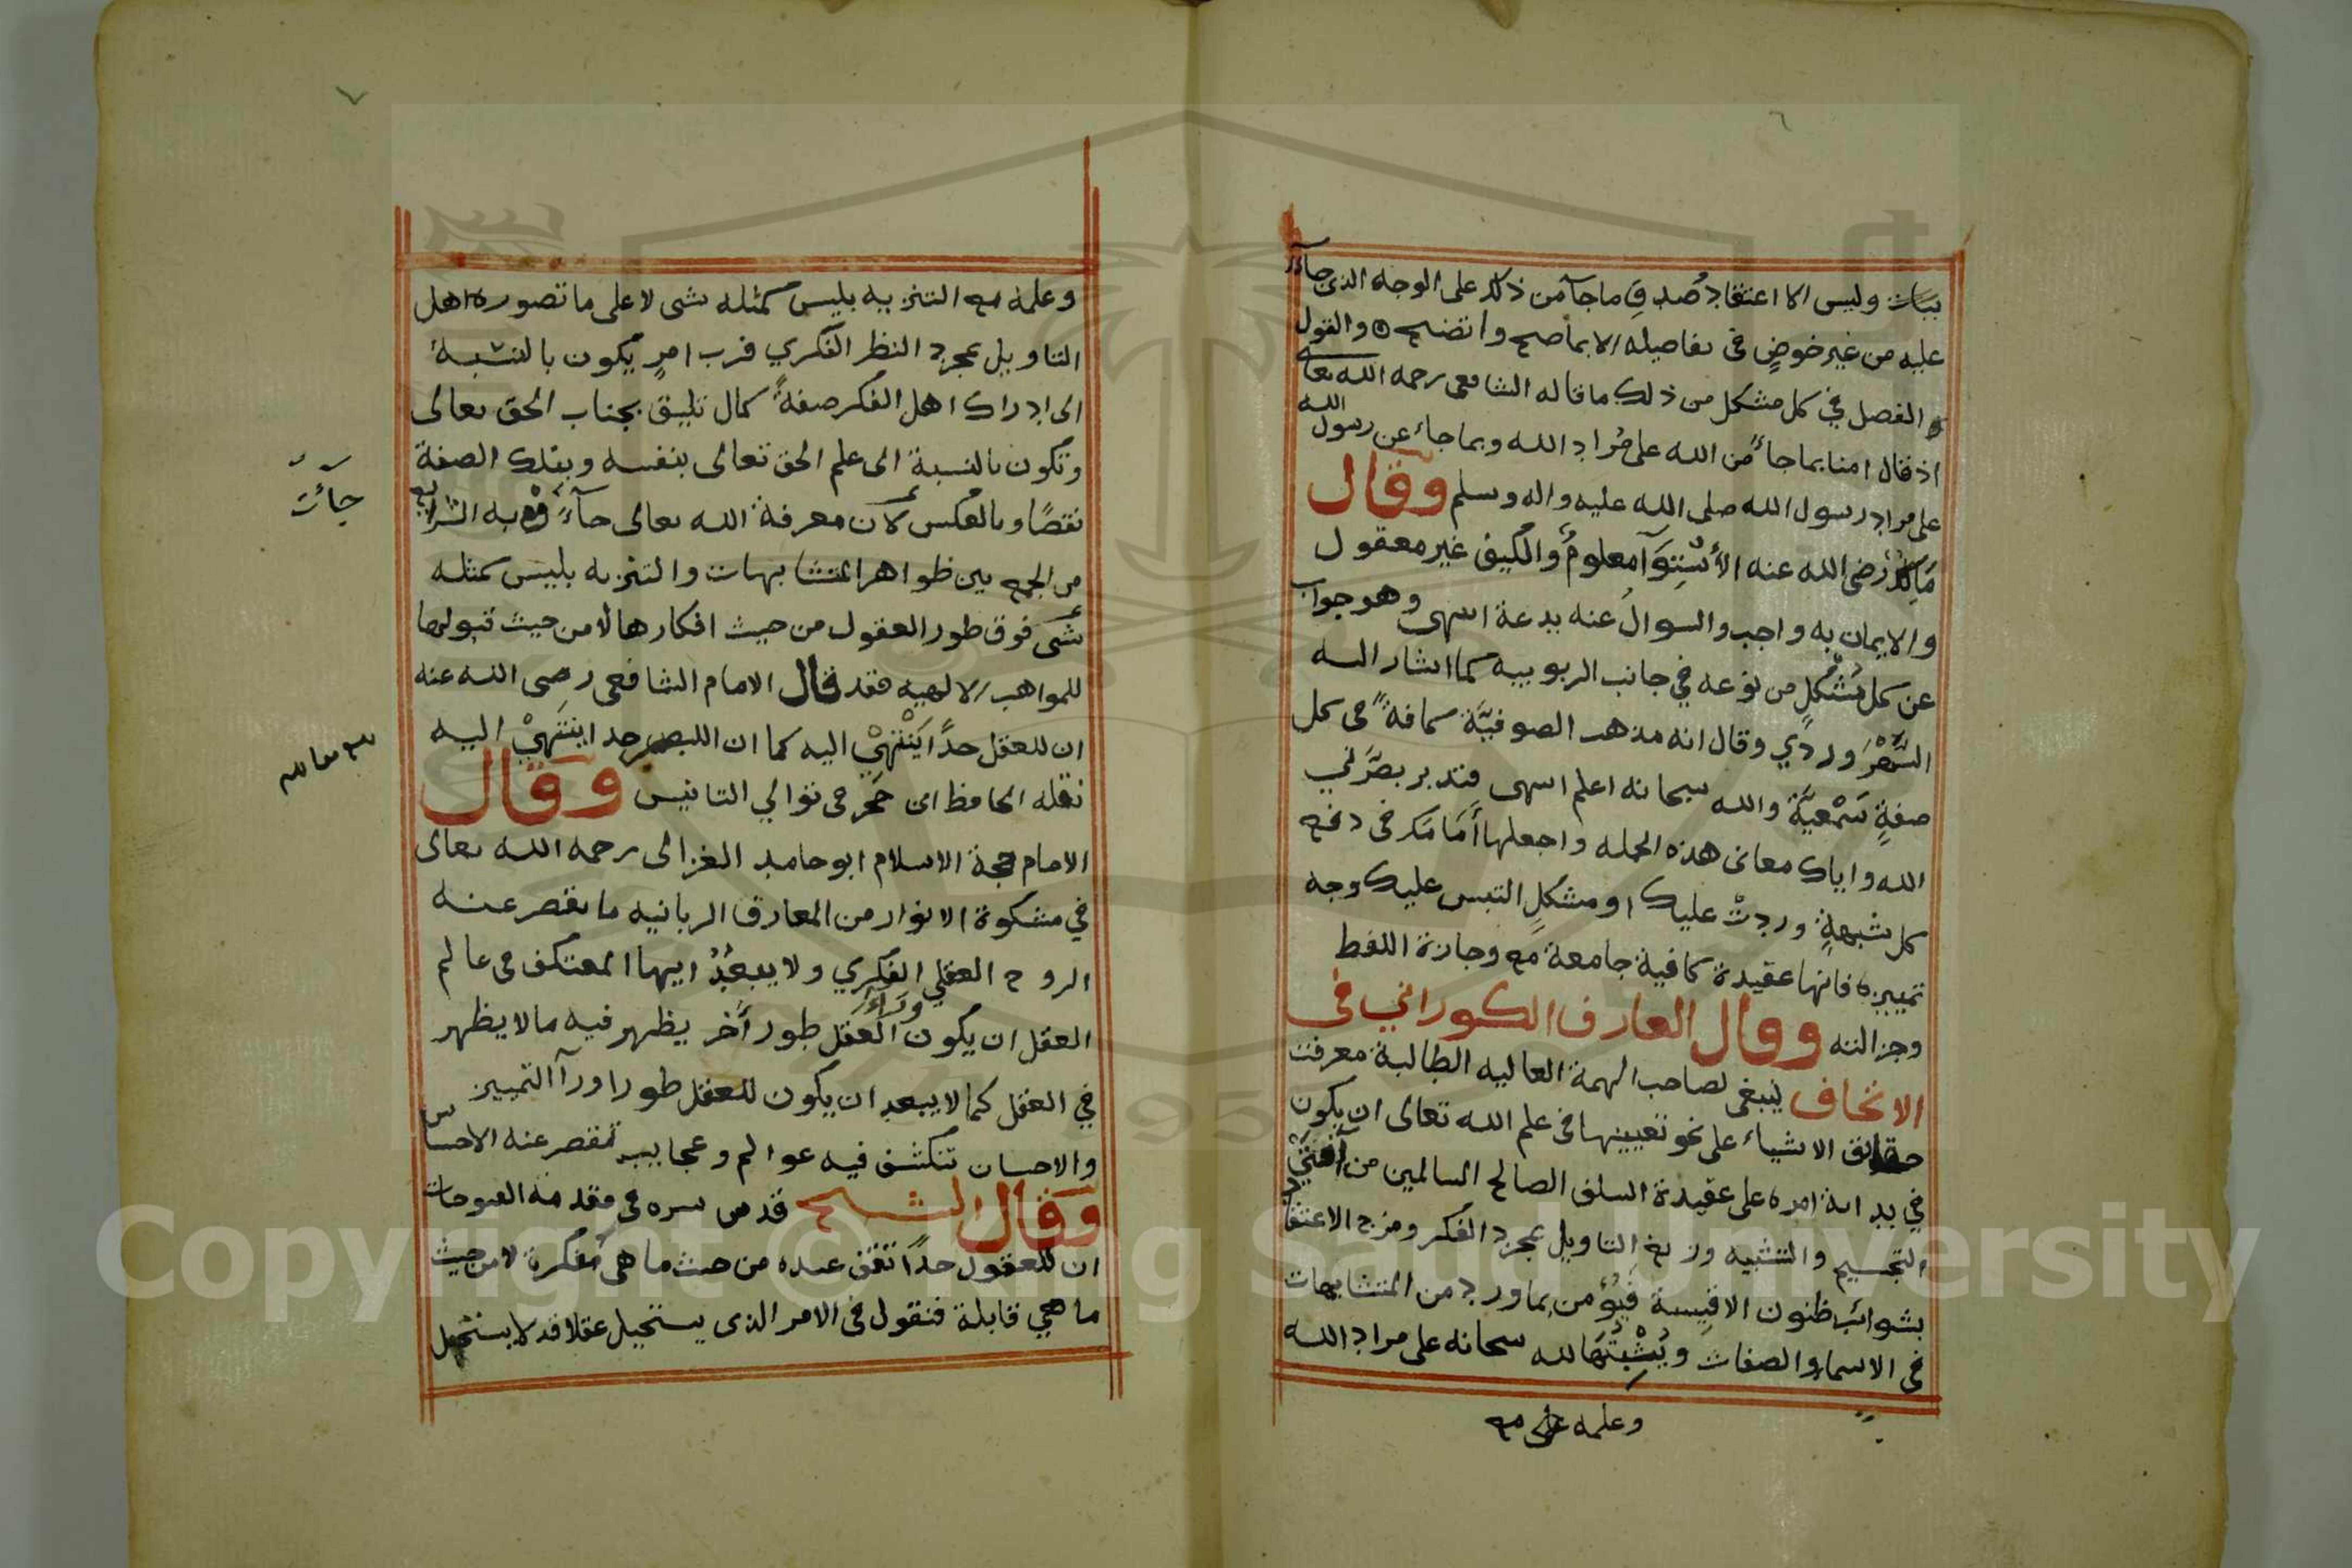 ٦
ببيان وليس الا اعتقاد صدق ما جآء من ذلك على الوجه الذى جآء
عليه من غير خوضٍ فى تفاصيله الا بما صح واتضح والقول
الفصل في كل مشكل من ذلك ما قاله الشافعى رحمه الله تعالى
اذ قال امنا بما جاءَ من الله على مُراد الله وبما جاء عن رسول الله
على مراد رسول الله صلى الله عليه واله وسلم وقال
مَالِكٌ رضى الله عنه الأسْتِوَآ معلومٌ والكيف غير معقول
والايمان به واجب والسوال عنه بدعة انتهى وهو جواب
عن كل مُشْكِلٍ من نوعه في جانب الربوبيه كما اشار اليه
السَّهْرَوردي وقال انه مذهب الصوفيَّة كافةً فى كل
صفةٍ سَمْعيَّة والله سبحانه اعلم انتهى فتدبر بصَّرني
الله واياك معانى هذه الجمله واجعلها أمَامَك فى دفع
كل شبهةٍ وردتْ عليك او مشكلٍ التبس عليك وجه
تمييزه فانها عقيدة كافية جامعة مع وجازة اللفظ
وجزالته وقال العارف الكوراني فى
الاتحاف ينبغى لصاحب الهمة العاليه الطالبة معرفت
حقائق الاشياء على نحو تعيينها فى علم الله تعالى ان يكون
في بداية امره على عقيدة السلف الصالح السالمين من آفتَيْ
التجسيم والتشبيه وزيغ التاويل بمجرد الفكر ومزج الاعتقاد
بشوائب ظنون الاقيسة فيُؤمن بما ورد من المتشابهات
فى الاسماء والصفات ويُثْبِتُهَا لله سبحانه على مراد الله
وعلمه مع
٧
وعلمه مع التنزيه بليس كمثله شى لا على ما تصوره اهل
التاويل بمجرد النظر الفكري فرب امرٍ يكون بالنسبة
الى ادراك اهل الفكر صفةً كمال تليق بجناب الحق تعالى
وتكون بالنسبة الى علم الحق تعالى بنفسه وبتلك الصفة
نقصًا وبالعكس لان معرفة الله تعالى جآءت به الشرايع
من الجمع بين ظواهر المتشابهات والتنزيه بليس كمثله
شى فوق طور العقول من حيث افكارها لا من حيث قبولها
للمواهب الالهيه فقد قال الامام الشافعى رضى الله عنه
ان للعقل حدًا يَنْتهيْ اليه كما ان للبصر حد اينتَهيْ اليه
نقله الحافظ ابن حجر فى توالي التانيس وقال
الامام حجة الاسلام ابو حامد الغزالى رحمه الله تعالى
في مشكوة الانوار من المعارف الربانيه ما يقصر عنه
الروح العقلي الفكري ولا يبعُدُ ايها المعتكف فى عالم
العقل ان يكون ورَاءَ العقل طور أخر يظهر فيه ما لا يظهر
في العقل كما لا يبعد ان يكون للعقل طورا ورآ التمييز
والاحسان تنكشف فيه عوالم وعجايب تقصر عنه الاحساس
وقال الشيخ قدس سره فى مقدمة الفتوحات
ان للعقول حدًا تقف عنده من حيث ما هى مُفكرة لا من حيث
ما هي قابلة فنقول فى الامر الذى يستحيل عقلا قد لا يستحيل
جآئت